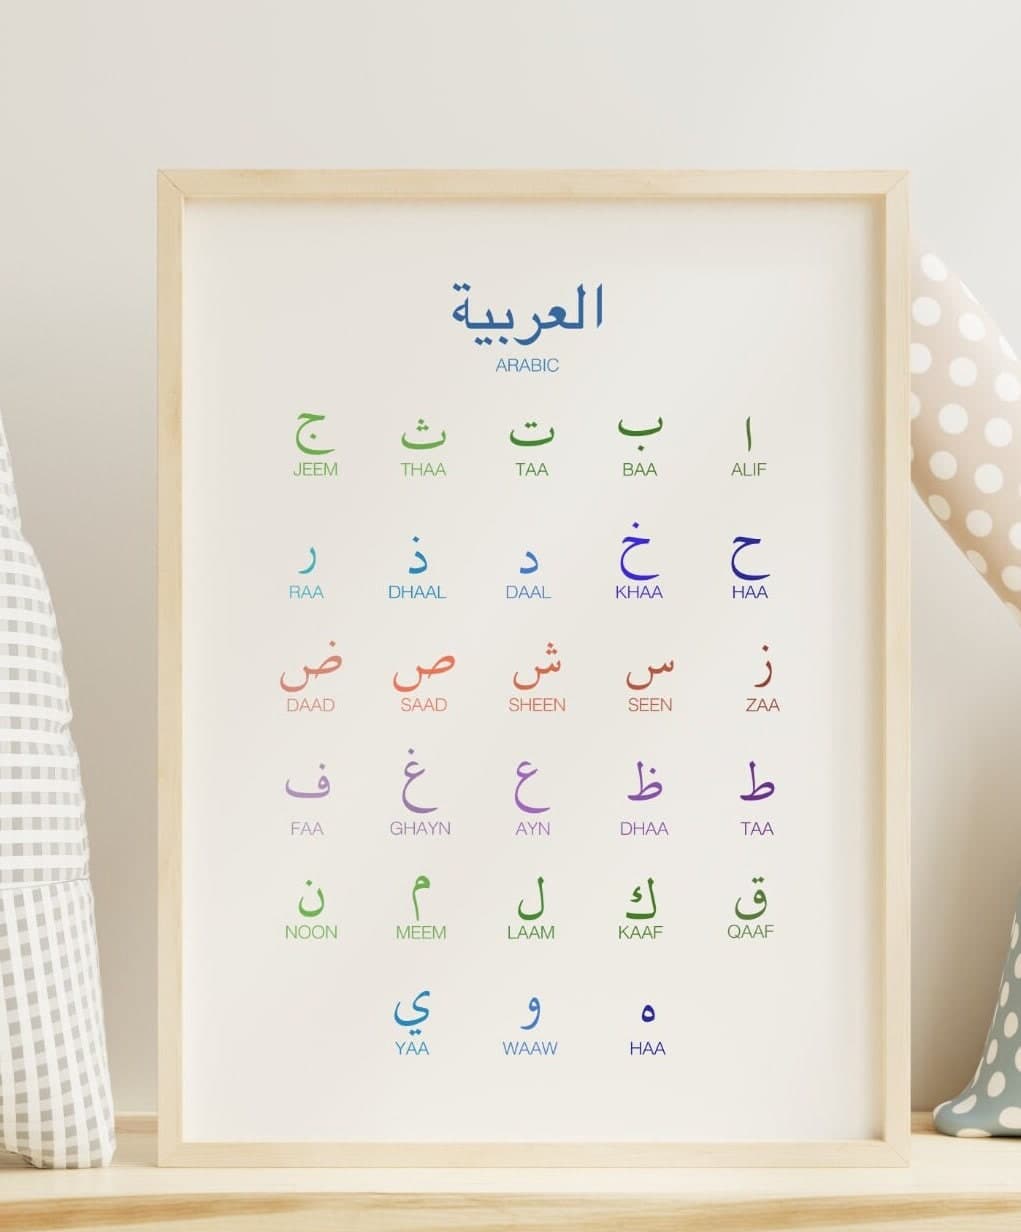 العربية
ARABIC
ا ب ت ث ج
ALIF BAA TAA THAA JEEM
ح خ د ذ ر
HAA KHAA DAAL DHAAL RAA
ز س ش ص ض
ZAA SEEN SHEEN SAAD DAAD
ط ظ ع غ ف
TAA DHAA AYN GHAYN FAA
ق ك ل م ن
QAAF KAAF LAAM MEEM NOON
ه و ي
HAA WAAW YAA